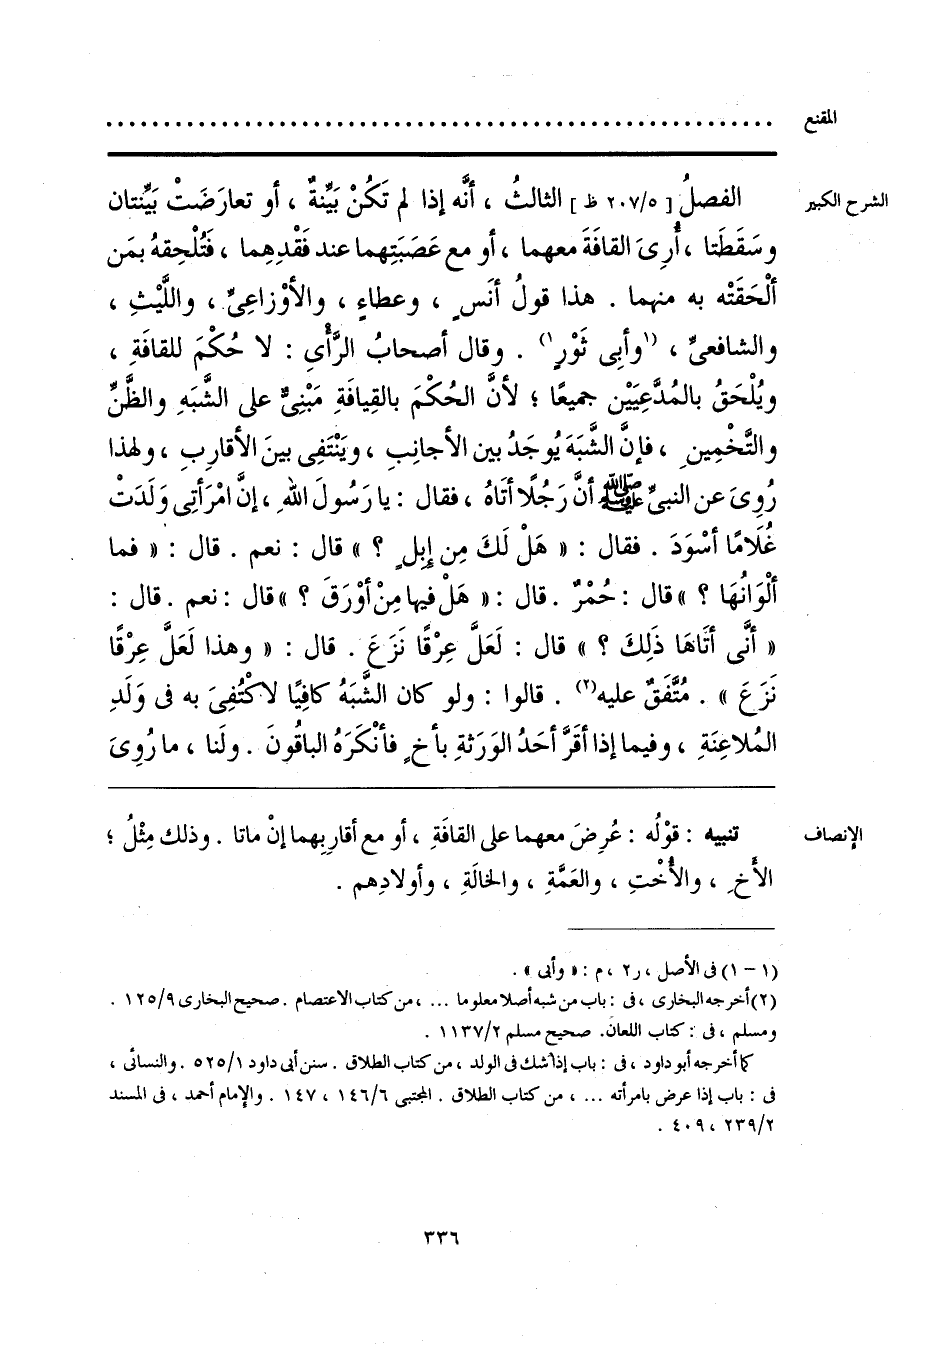 المقنع ........................................................
الشرح الكبير
الفصلُ [ ٢٠٧/٥ ظ ] الثالثُ ، أنَّه إذا لم تَكُنْ بَيِّنةٌ ، أو تعارَضَتْ بَيِّنتان
وسَقَطَتا ، أُرِىَ القافَةَ معهما ، أو مع عَصَبَتِهما عند فَقْدِهِما ، فَتُلْحِقهُ بمَن
ألْحَقَتْه به منهما . هذا قولُ أنَسٍ ، وعطاءٍ ، والأوْزاعِىِّ ، واللَّيْثِ ،
والشافعىِّ ، (١وأبِى ثَوْرٍ١) . وقال أصحابُ الرَّأْىِ : لا حُكْمَ للقافَةِ ،
ويُلْحَقُ بالمُدَّعِيَيْن جميعًا ؛ لأنَّ الحُكْمَ بالقِيافَةِ مَبْنِىٌّ على الشَّبَهِ والظَّنِّ
والتَّخْمِينِ ، فإنَّ الشَّبَهَ يُوجَدُ بين الأجانِبِ ، ويَنْتَفِى بينَ الأقارِبِ ، ولهذا
رُوِىَ عن النبىِّ ﷺ أنَّ رَجُلًا أتَاهُ ، فقال : يا رَسُولَ اللهِ ، إنَّ امْرَأتِى وَلَدَتْ
غُلَامًا أسْوَدَ . فقال : « هَلْ لَكَ مِن إِبِلٍ ؟ » قال : نعم . قال : « فما
ألْوَانُهَا ؟ » قال : حُمْرٌ . قال : « هَلْ فيها مِنْ أوْرَقَ ؟ » قال : نعم . قال :
« أنَّى أتَاهَا ذَلِكَ ؟ » قال : لَعَلَّ عِرْقًا نَزَعَ . قال : « وهذا لَعَلَّ عِرْقًا
نَزَعَ » . مُتَّفَقٌ عليه(٢) . قالوا : ولو كان الشَّبَهُ كافِيًا لاكْتُفِىَ به فى وَلَدِ
المُلاعِنَةِ ، وفيما إذا أقَرَّ أحَدُ الوَرَثةِ بأخٍ فأنْكَرَهُ الباقُونَ . ولَنا ، ما رُوِىَ
الإنصاف
تنبيه : قوْلُه : عُرِضَ معهما على القافَةِ ، أو مع أقارِبِهما إنْ ماتا . وذلك مِثْلُ ؛
الأَخِ ، والأُخْتِ ، والعَمَّةِ ، والخالَةِ ، وأولادِهم .
(١ - ١) فى الأصل ، ر٢ ، م : « وأبى » .
(٢) أخرجه البخارى ، فى : باب من شبه أصلا معلوما ... ، من كتاب الاعتصام . صحيح البخارى ١٢٥/٩ .
ومسلم ، فى : كتاب اللعان. صحيح مسلم ١١٣٧/٢ .
كما أخرجه أبو داود ، فى : باب إذا شك فى الولد ، من كتاب الطلاق . سنن أبى داود ٥٢٥/١ . والنسائى ،
فى : باب إذا عرض بامرأته ... ، من كتاب الطلاق . المجتبى ١٤٦/٦ ، ١٤٧ . والإمام أحمد ، فى المسند
٢٣٩/٢ ، ٤٠٩ .
٣٣٦